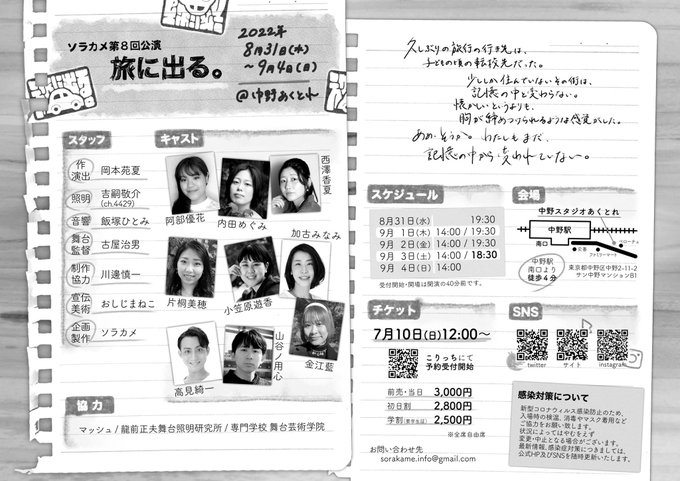 ソラカメ第8回公演
旅に出る。
2022年
8月31日(水)
～9月4日(日)
@中野あくとれ
スタッフ
作
演出
岡本苑夏
照明
吉嗣敬介
(ch.4429)
音響
飯塚ひとみ
舞台
監督
古屋治男
制作
協力
川邊慎一
宣伝
美術
おしじまねこ
企画
製作
ソラカメ
キャスト
阿部優花
内田めぐみ
西澤香夏
片桐美穂
小笠原遊香
加古みなみ
高見綺一
山谷ノ用心
金江藍
協力
マッシュ/龍前正夫舞台照明研究所/専門学校 舞台芸術学院
久しぶりの旅行の行き先は、
子どもの頃の転校先だった。
少ししか住んでいないその街は、
記憶の中と変わらない。
懐かしいというよりも、
胸が締めつけられるような感覚がした。
あぁ、そうか。わたしもまだ、
記憶の中から変われていない。
スケジュール
8月31日(水) 19:30
9月 1日(木) 14:00 / 19:30
9月 2日(金) 14:00 / 19:30
9月 3日(土) 14:00 / 18:30
9月 4日(日) 14:00
受付開始・開場は開演の40分前です。
会場
中野スタジオあくとれ
中野駅
南口
ファミリーマート
中野駅
南口より
徒歩4分
東京都中野区中野2-11-2
サン中野マンションB1
チケット
7月10日(日)12:00～
こりっちにて
予約受付開始
前売・当日 3,000円
初日割 2,800円
学割(要学生証) 2,500円
※全席自由席
お問い合わせ先
sorakame.info@gmail.com
SNS
twitter
サイト
instagram
感染対策について
新型コロナウィルス感染防止のため、
入場時の検温、消毒やマスク着用など
ご協力をお願い致します。
状況によってはやむをえず
変更・中止となる場合がございます。
最新情報、感染症対策につきましては、
公式HP及びSNSを随時更新いたします。